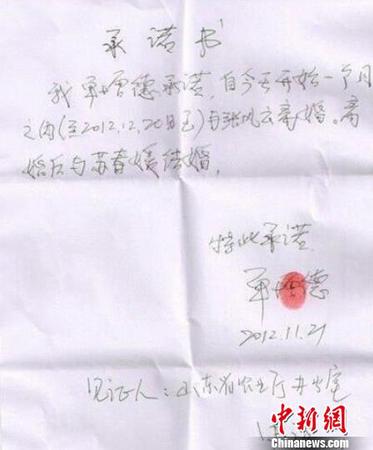 承诺书
我单增德承诺,自今天开始一个月
之内(至2012.12.20日至)与张风云离婚。离
婚后与苏春媛结婚,
特此承诺.
单增德
2012.11.21
见证人:山东省农业厅办公室
中新网
Chinanews.com